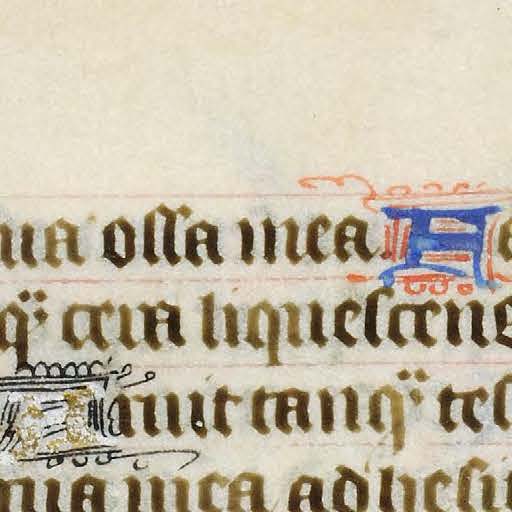 ossa mea
qᷓ cera liquescens
Aruit tanqᷓ tes
mea adhesit